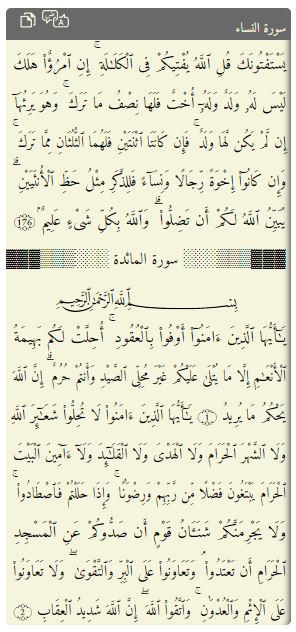 سورة النساء
يَسْتَفْتُونَكَ قُلِ ٱللَّهُ يُفْتِيكُمْ فِى ٱلْكَلَـٰلَةِ ۚ إِنِ ٱمْرُؤٌا۟ هَلَكَ
لَيْسَ لَهُۥ وَلَدٌ وَلَهُۥٓ أُخْتٌ فَلَهَا نِصْفُ مَا تَرَكَ ۚ وَهُوَ يَرِثُهَآ
إِن لَّمْ يَكُن لَّهَا وَلَدٌ ۚ فَإِن كَانَتَا ٱثْنَتَيْنِ فَلَهُمَا ٱلثُّلُثَانِ مِمَّا تَرَكَ ۚ
وَإِن كَانُوٓا۟ إِخْوَةً رِّجَالًا وَنِسَآءً فَلِلذَّكَرِ مِثْلُ حَظِّ ٱلْأُنثَيَيْنِ ۗ
يُبَيِّنُ ٱللَّهُ لَكُمْ أَن تَضِلُّوا۟ ۗ وَٱللَّهُ بِكُلِّ شَىْءٍ عَلِيمٌۢ ﴿176﴾
سورة المائدة
بِسْمِ ٱللَّهِ ٱلرَّحْمَـٰنِ ٱلرَّحِيمِ
يَـٰٓأَيُّهَا ٱلَّذِينَ ءَامَنُوٓا۟ أَوْفُوا۟ بِٱلْعُقُودِ ۚ أُحِلَّتْ لَكُم بَهِيمَةُ
ٱلْأَنْعَـٰمِ إِلَّا مَا يُتْلَىٰ عَلَيْكُمْ غَيْرَ مُحِلِّى ٱلصَّيْدِ وَأَنتُمْ حُرُمٌ ۗ إِنَّ ٱللَّهَ
يَحْكُمُ مَا يُرِيدُ ﴿1﴾ يَـٰٓأَيُّهَا ٱلَّذِينَ ءَامَنُوا۟ لَا تُحِلُّوا۟ شَعَـٰٓئِرَ ٱللَّهِ
وَلَا ٱلشَّهْرَ ٱلْحَرَامَ وَلَا ٱلْهَدْىَ وَلَا ٱلْقَلَـٰٓئِدَ وَلَآ ءَآمِّينَ ٱلْبَيْتَ
ٱلْحَرَامَ يَبْتَغُونَ فَضْلًا مِّن رَّبِّهِمْ وَرِضْوَٰنًا ۚ وَإِذَا حَلَلْتُمْ فَٱصْطَادُوا۟ ۚ
وَلَا يَجْرِمَنَّكُمْ شَنَـَٔانُ قَوْمٍ أَن صَدُّوكُمْ عَنِ ٱلْمَسْجِدِ
ٱلْحَرَامِ أَن تَعْتَدُوا۟ ۘ وَتَعَاوَنُوا۟ عَلَى ٱلْبِرِّ وَٱلتَّقْوَىٰ ۖ وَلَا تَعَاوَنُوا۟
عَلَى ٱلْإِثْمِ وَٱلْعُدْوَٰنِ ۚ وَٱتَّقُوا۟ ٱللَّهَ ۖ إِنَّ ٱللَّهَ شَدِيدُ ٱلْعِقَابِ ﴿2﴾